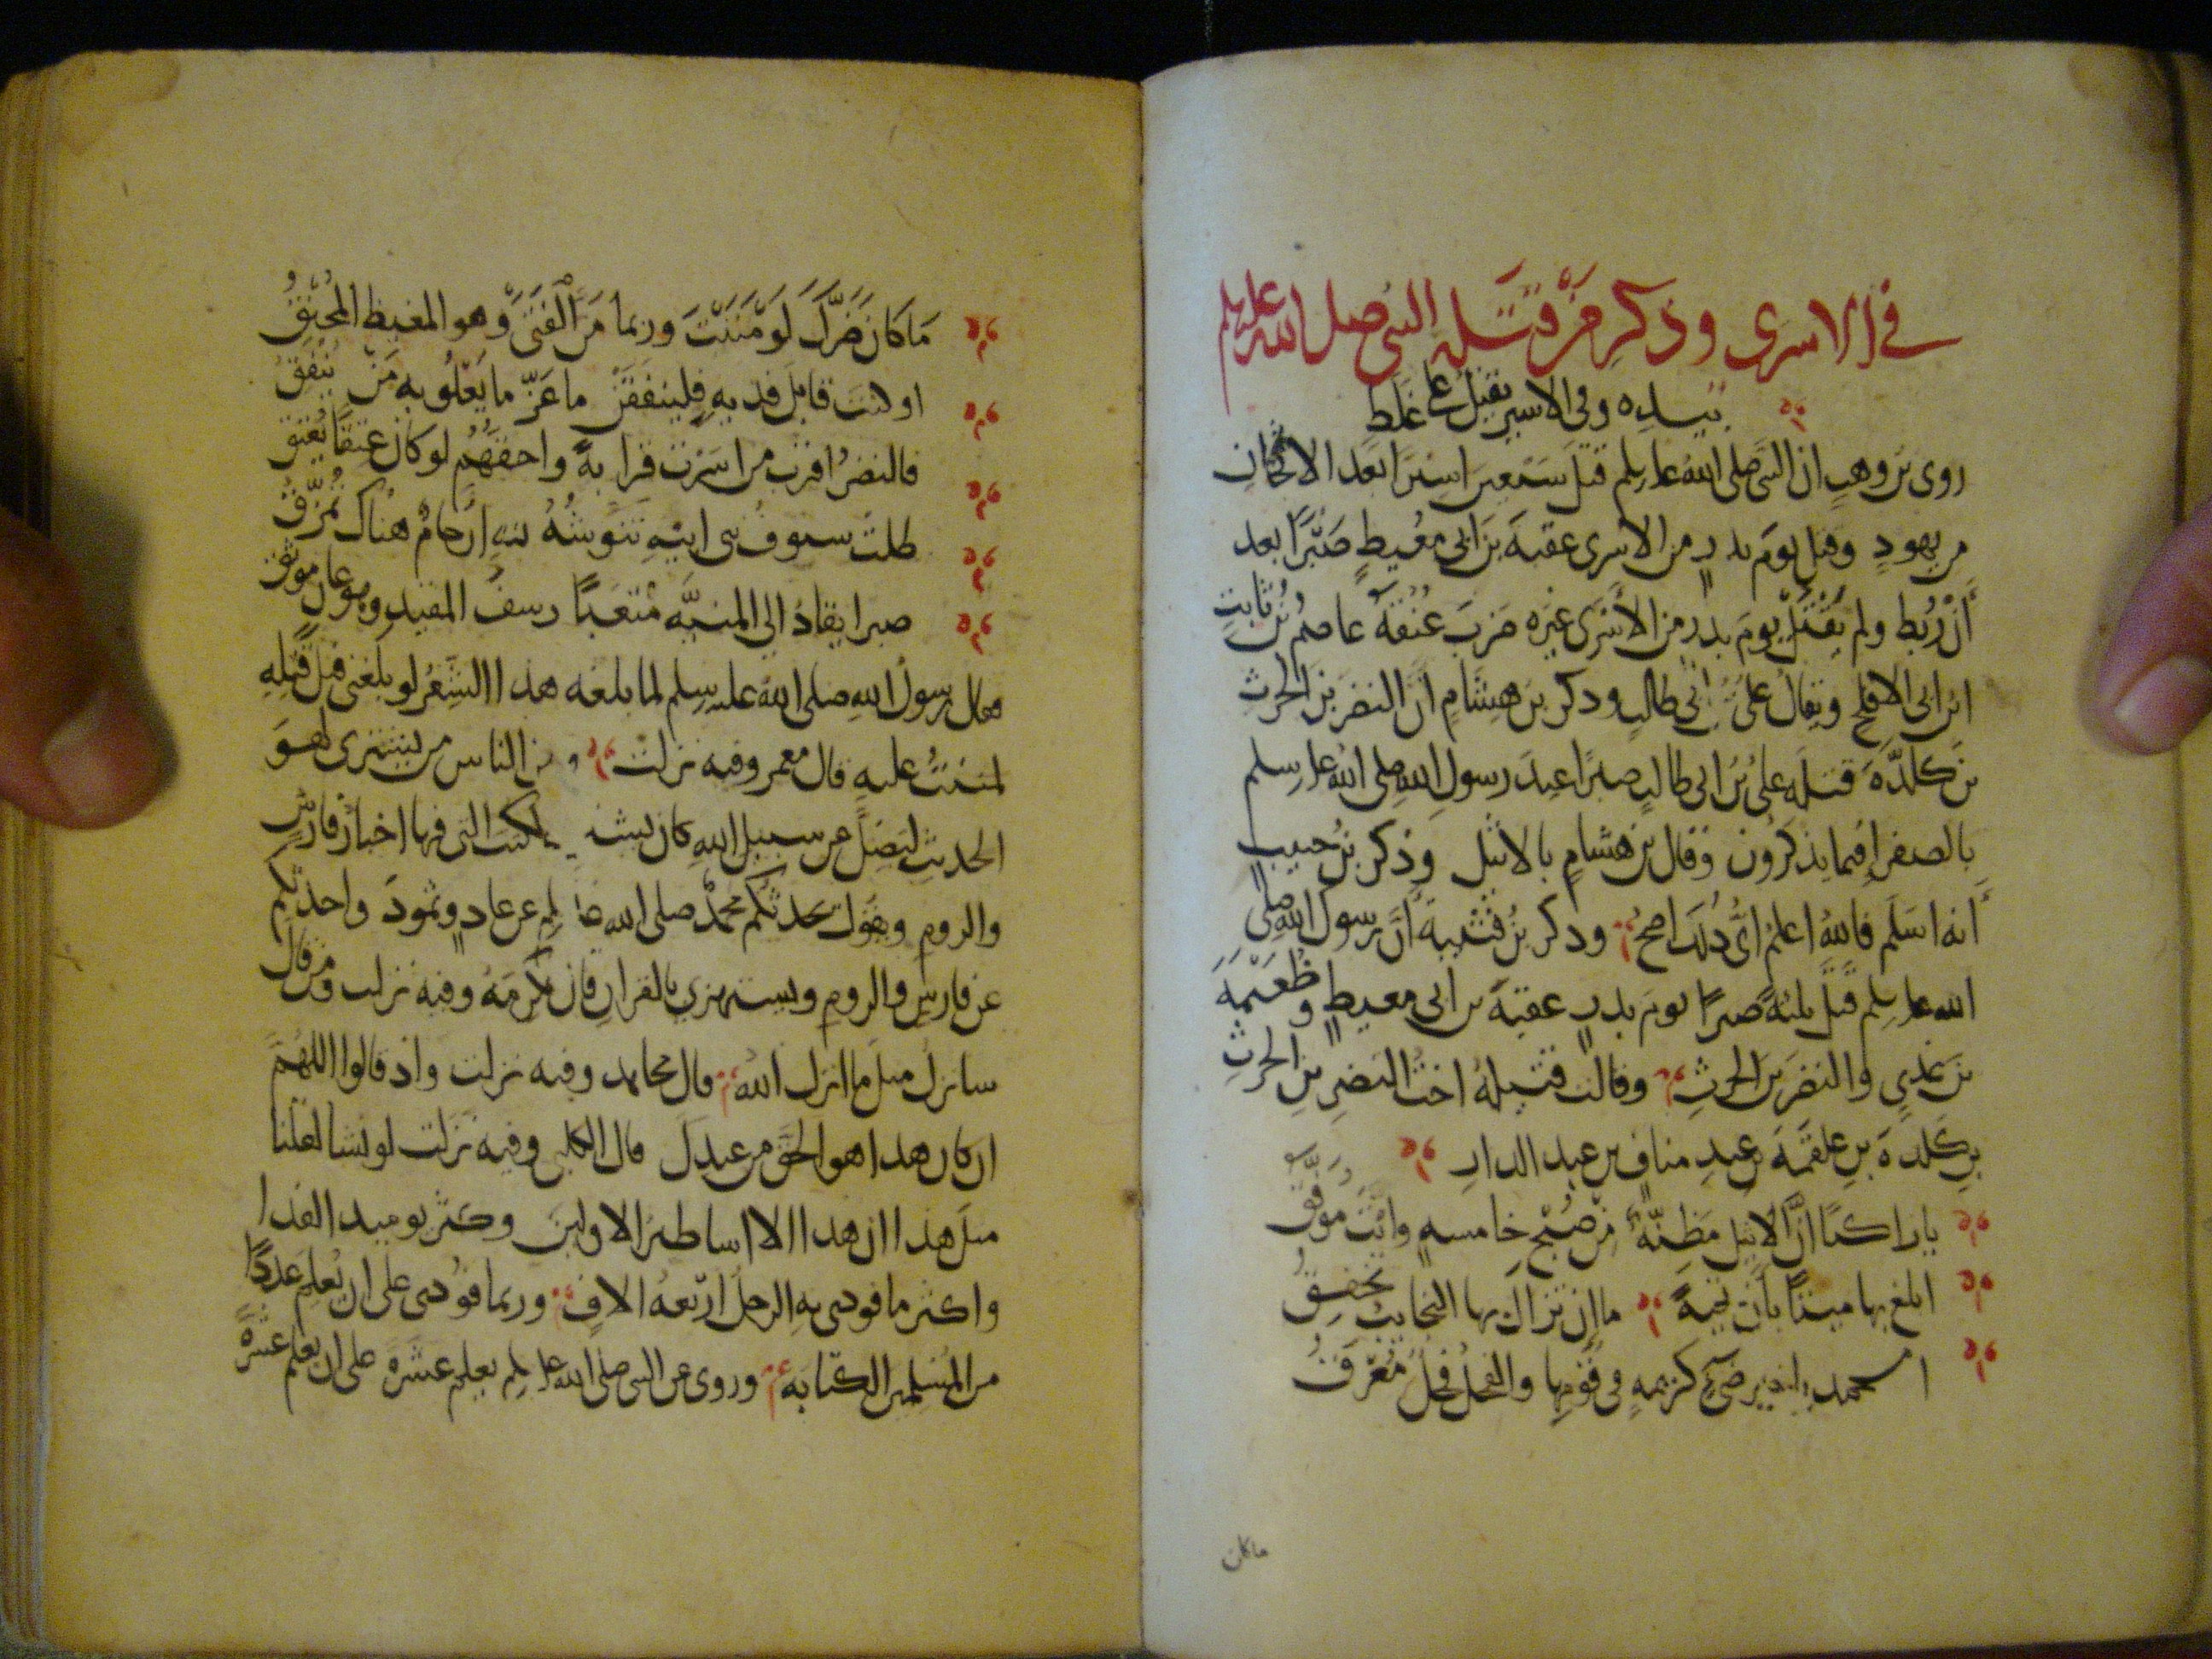 في الاسرى وذكر من قتله النبي صلى الله عليه وسلم
بيده وفي الاسير يقتل على غلط
روى بن وهب ان النبي صلى الله عليه وسلم قتل سبعين اسيرا بعد الاثخان
من يهود وقتل يوم بدر من الاسرى عقبة بن ابي معيط صبرا بعد
أن رُبط ولم يقتل يوم بدر من الأسرى غيره ضرب عنقه عاصم بن ثابت
ابن ابي الاقلح ويقال علي بن ابي طالب وذكر بن هشام ان النضر بن الحرث
بن كلدة قتله علي بن ابي طالب صبرا عند رسول الله صلى الله عليه وسلم
بالصفرا فيما يذكرون وقال بن هشام بالاثيل وذكر بن حبيب
أنه اسلم فالله اعلم اي ذلك اصح وذكر بن قتيبة أن رسول الله صلى
الله عليه وسلم قتل ثلثة صبرا يوم بدر عقبة بن ابي معيط وطعيمة
بن عدي والنضر بن الحرث وقالت قتيلة اخت النضر بن الحرث
بن كلدة بن علقمة بن عبد مناف بن عبد الدار
يا راكبا انّ الاثيل مظنّة من صبح خامسه وانت موفّق
ابلغ بها ميتا بان تحية ما ان تزال بها النجايب تخفق
امحمد يا خير ضيء كريمة في قومها والفحل فحل معرق
ماكان
ما كان ضرّك لو مننت وربما من الفتى وهو المغيظ المحنق
او لست قابل فدية فلينفقن ما عزّ ما يغلو به من ينفق
فالنضر اقرب من اسرت قرابة واحقهم لو كان عتقا يعتق
ظلت سيوف بني ابيه تنوشه لله ارحام هناك تمزّق
صبرا يقاد الى المنيّه متعبا رسف المقيد وهو عان موثق
فقال رسول الله صلى الله عليه وسلم لما بلغه هذا الشعر لو بلغني قبل قتله
لمننت عليه قال معمر وفيه نزلت ومن الناس من يشتري لهو
الحديث ليضل عن سبيل الله كان يشتري الكتب التي فيها اخبار فارس
والروم ويقول يحدثكم محمد صلى الله عليه وسلم عن عاد وثمود واحدثكم
عن فارس والروم ويستهزي بالقران قال عكرمة وفيه نزلت ومن قال
سانزل مثل ما انزل الله قال مجاهد وفيه نزلت واذ قالوا اللهم
ان كان هذا هو الحق من عندك قال الكلبي وفيه نزلت لو نشا لقلنا
مثل هذا ان هذا الا اساطير الاولين وكثر يوميذ الفدا
واكثر ما فودي به الرجل اربعة الاف وربما فودي على ان يعلم عددا
من المسلمين الكتابه وروي عن النبي صلى الله عليه وسلم يعلم عشرة على ان يعلم عشرة